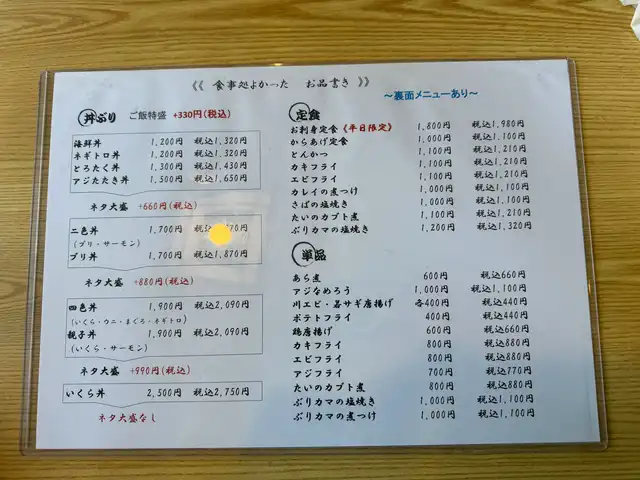 《《 食事処よかった お品書き 》》
~裏面メニューあり~
丼ぶり ご飯特盛 +330円(税込)
海鮮丼 1,200円 税込1,320円
ネギトロ丼 1,200円 税込1,320円
とろたく丼 1,300円 税込1,430円
アジたたき丼 1,500円 税込1,650円
ネタ大盛 +660円(税込)
二色丼 1,700円 税込 870円
(ブリ・サーモン)
ブリ丼 1,700円 税込1,870円
ネタ大盛 +880円(税込)
四色丼 1,900円 税込2,090円
(いくら・ウニ・まぐろ・ネギトロ)
親子丼 1,900円 税込2,090円
(いくら・サーモン)
ネタ大盛 +990円(税込)
いくら丼 2,500円 税込2,750円
ネタ大盛なし
定食
お刺身定食《平日限定》 1,800円 税込1,980円
からあげ定食 1,000円 税込1,100円
とんかつ 1,100円 税込1,210円
カキフライ 1,100円 税込1,210円
エビフライ 1,100円 税込1,210円
カレイの煮つけ 1,000円 税込1,100円
さばの塩焼き 1,000円 税込1,100円
たいのカブト煮 1,100円 税込1,210円
ぶりカマの塩焼き 1,200円 税込1,320円
単品
あら煮 600円 税込660円
アジなめろう 1,000円 税込1,100円
川エビ・若サギ唐揚げ 各400円 税込440円
ポテトフライ 400円 税込440円
鶏唐揚げ 600円 税込660円
カキフライ 800円 税込880円
エビフライ 800円 税込880円
アジフライ 700円 税込770円
たいのカブト煮 800円 税込880円
ぶりカマの塩焼き 1,000円 税込1,100円
ぶりカマの煮つけ 1,000円 税込1,100円